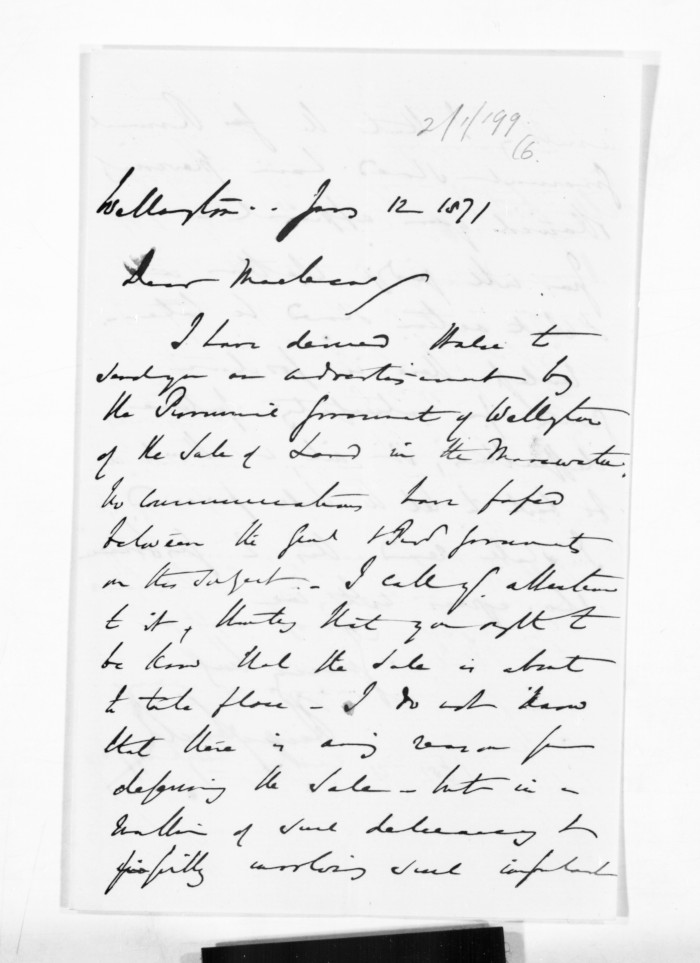 2/1/199
6.
Wellington.. Jany 12 1871
Dear Maclean
I have desired Halse to
send you an advertisement by
the Provincial Government of Wellington
of the Sale of Land in the Manawatu.
No communications have passed
between the Genl & Provl Governments
on this subject. - I call yr. attention
to it, thinking that you ought to
be know that the Sale is about
to take place - I do not know
that there is any reason for
deferring the Sale - but in a
matter of such delicacy &
possibly involving such important